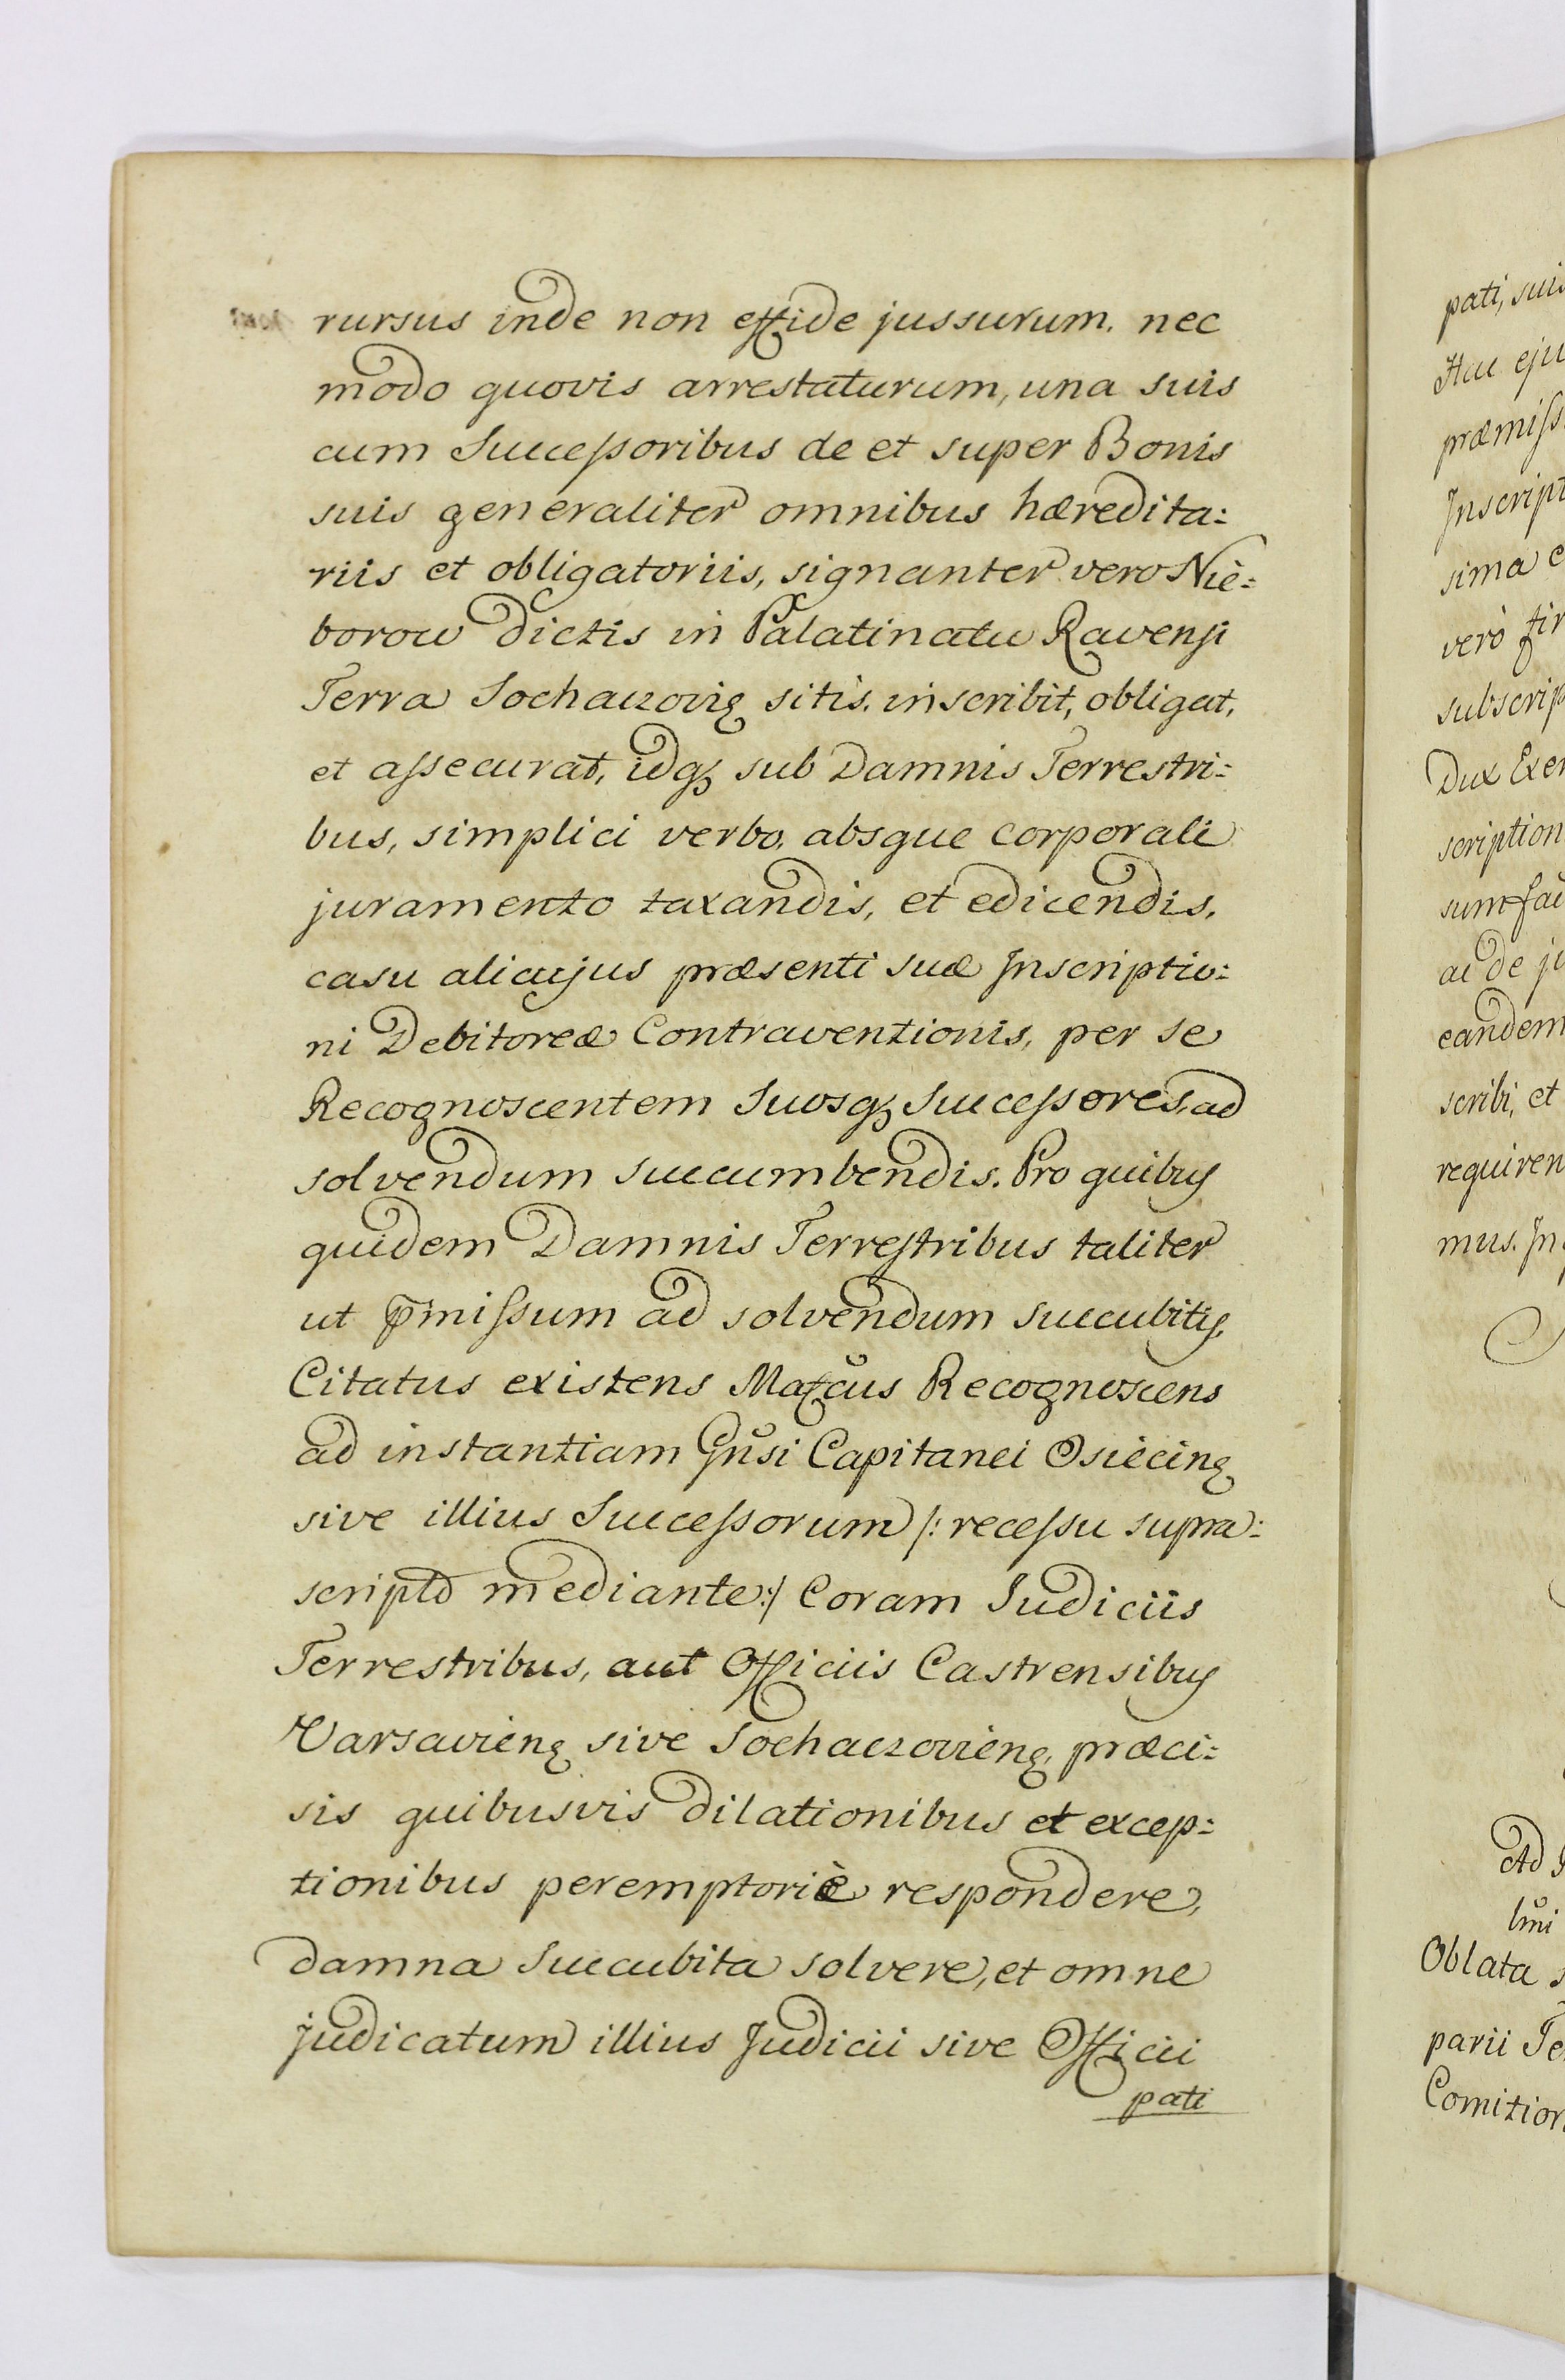 rursus inde non effide jussurum. nec
modo quovis arrestaturum, una suis
cum Successoribus de et super Bonis
suis generaliter omnibus hæredita:
riis et obligatoriis, signanter vero Nie:
borow dictis in Palatinatu Ravensi
Terra Sochaczovię sitis. inscribit, obligat,
et assecurat, idqȝ sub Damnis Terrestri:
bus, simplici verbo, absque corporali
juramento taxandis, et edicendis,
casu alicujus præsenti suæ Inscriptio:
ni Debitoreæ Contraventionis, per se
Recognoscentem Suosqȝ Successores, ad
solvendum succumbendis. Pro quibus
quidem Damnis Terrestribus taliter
ut p̃missum ad solvendum succubitis,
Citatus existens Mağcus Recognoscens
ad instantiam Gñsi Capitanei Osiecinę
sive illius Successorum /: recessu supra:
scripto mediante :/ Coram Judiciis
Terrestribus, aut Officiis Castrensibus
Varsavienę sive Sochaczovienę, præci:
sis quibusvis dilationibus et excep:
tionibus peremptoriè respondere,
damna succubita solvere, et omne
judicatum illius Judicii sive Officii
pati
pati,
eju
Inscript
sima
verò
subscrip
Dux
scription
de
eandem
scribi, et
requiren
mus.
Ad
Oblata
parii
Comitior